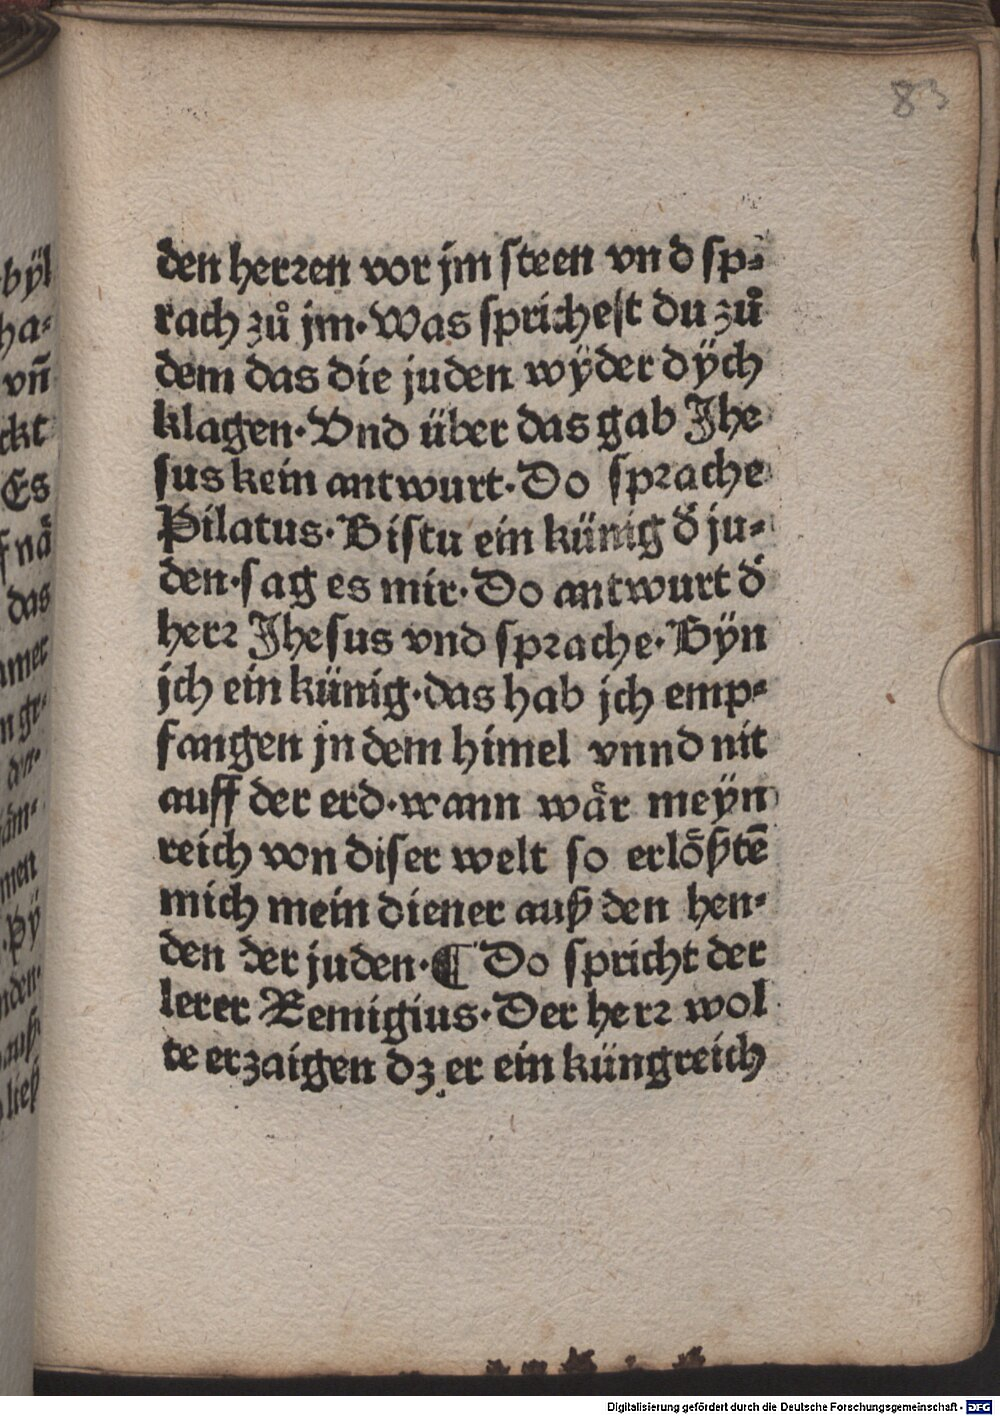 83
den herꝛen vor jm ſteen vnd ſp⸗
rach zů jm· Was ſpricheſt du zů
dem das die juden wÿder dÿch
klagen· Vnd über das gab Jhe
ſus kein antwurt· Do ſpꝛache
Pilatus· Biſtu ein künig d̕ ju⸗
den· ſag es mir· Do antwurt d̕
herꝛ Jheſus vnd ſpꝛache· Bÿn
jch ein künig· das hab jch emp⸗
fangen jn dem himel vnnd nit
auff der erd· wann wåꝛ meÿn
reich von diſer welt ſo erlöſztē
mich mein diener auſz den hen⸗
den der juden· ¶ Do ſpricht der
lerer Remigius· Der herꝛ wol
te erzaigen dz er ein küngreich
Digitalisierung gefördert durch die Deutsche Forschungsgemeinschaft - DFG